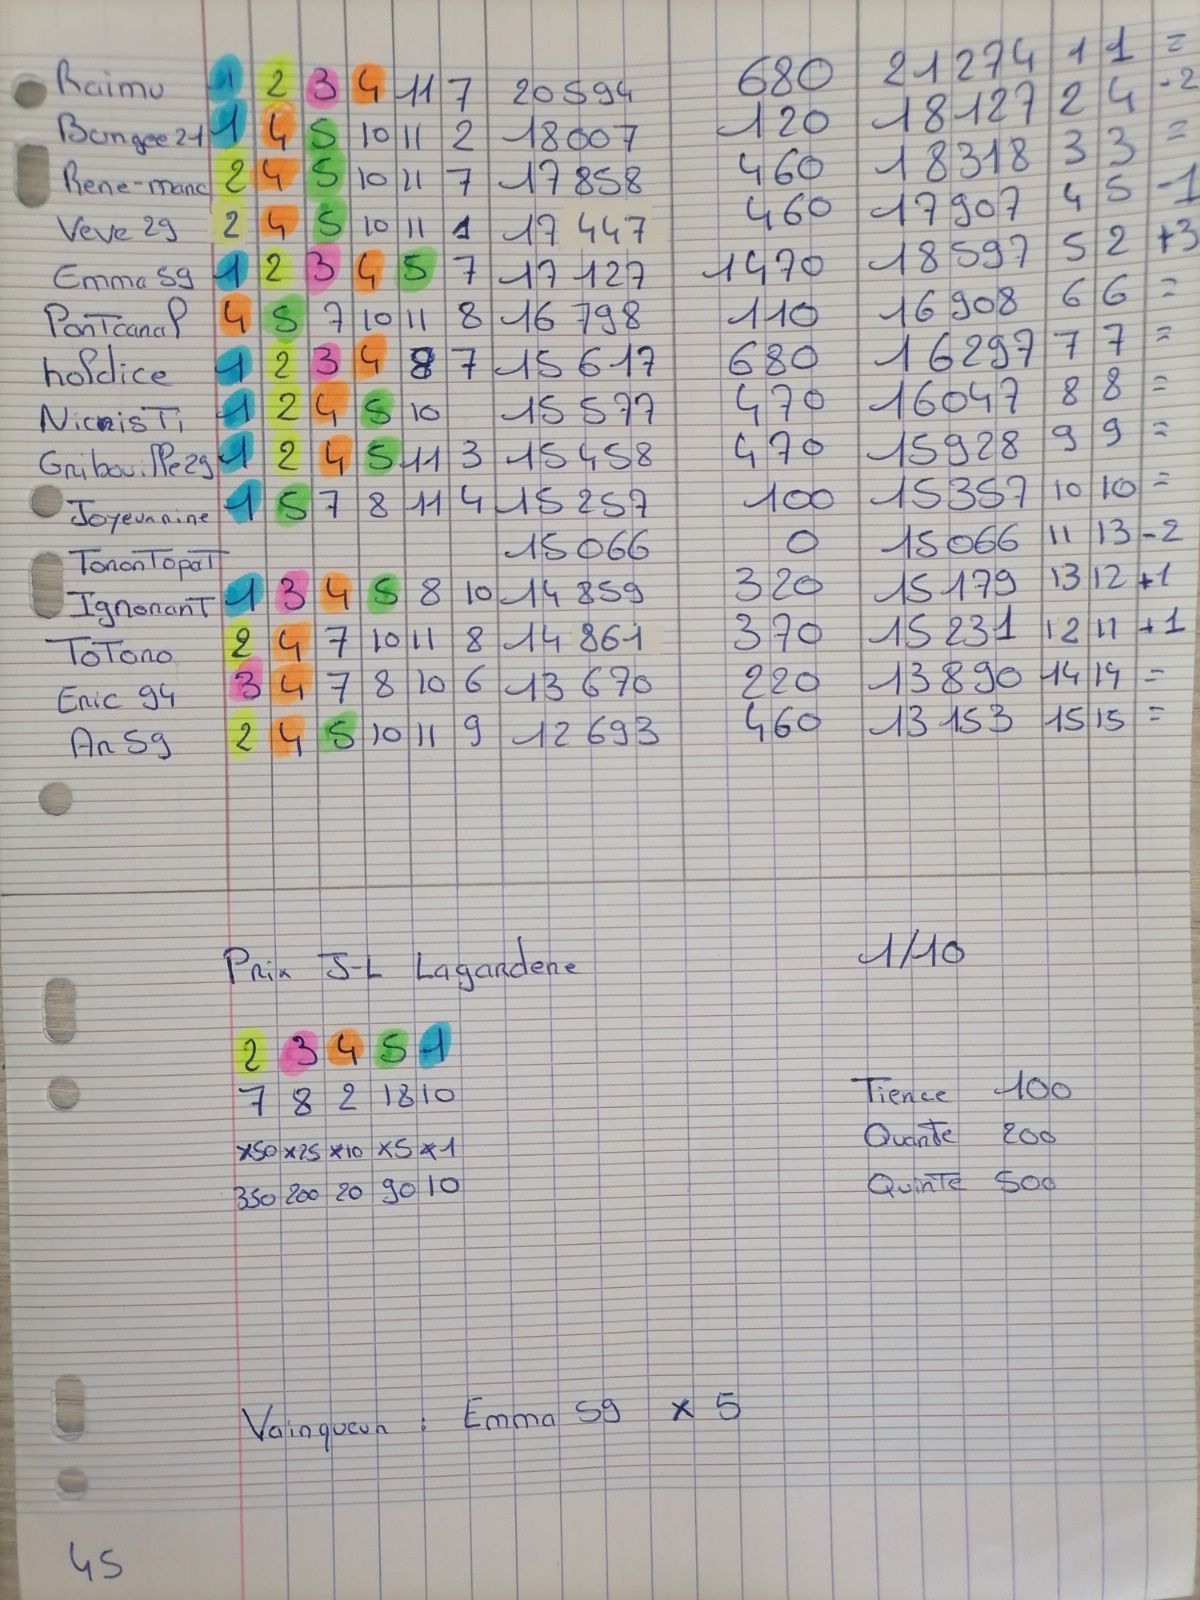 Raimu 1 2 3 4 11 7 20594 680 21274 1 1 =
Bongee21 1 4 5 10 11 2 18007 120 18127 2 4 -2
Rene-marc 2 4 5 10 11 7 17858 460 18318 3 3 =
Veve 29 2 4 5 10 11 1 17447 460 17907 4 5 -1
Emma 59 1 2 3 4 5 7 17127 1470 18597 5 2 +3
Pontcanal 4 5 7 10 11 8 16798 110 16908 6 6 =
holdice 1 2 3 4 8 7 15617 680 16297 7 7 =
NicrisTi 1 2 4 5 10 15577 470 16047 8 8 =
Gribouille29 1 2 4 5 11 3 15458 470 15928 9 9 =
Joyeunnine 1 5 7 8 11 4 15257 100 15357 10 10 =
TononTopaT 15066 0 15066 11 13 -2
IgnoranT 1 3 4 5 8 10 14859 320 15179 13 12 +1
ToTono 2 4 7 10 11 8 14861 370 15231 12 11 +1
Eric 94 3 4 7 8 10 6 13670 220 13890 14 14 =
An 59 2 4 5 10 11 9 12693 460 13153 15 15 =
Prix J-L Lagardere 1/10
2 3 4 5 1
7 8 2 18 10
Tierce 100
x50 x25 x10 x5 x1
Quarte 200
350 200 20 90 10
Quinte 500
Vainqueur : Emma 59 x 5
45